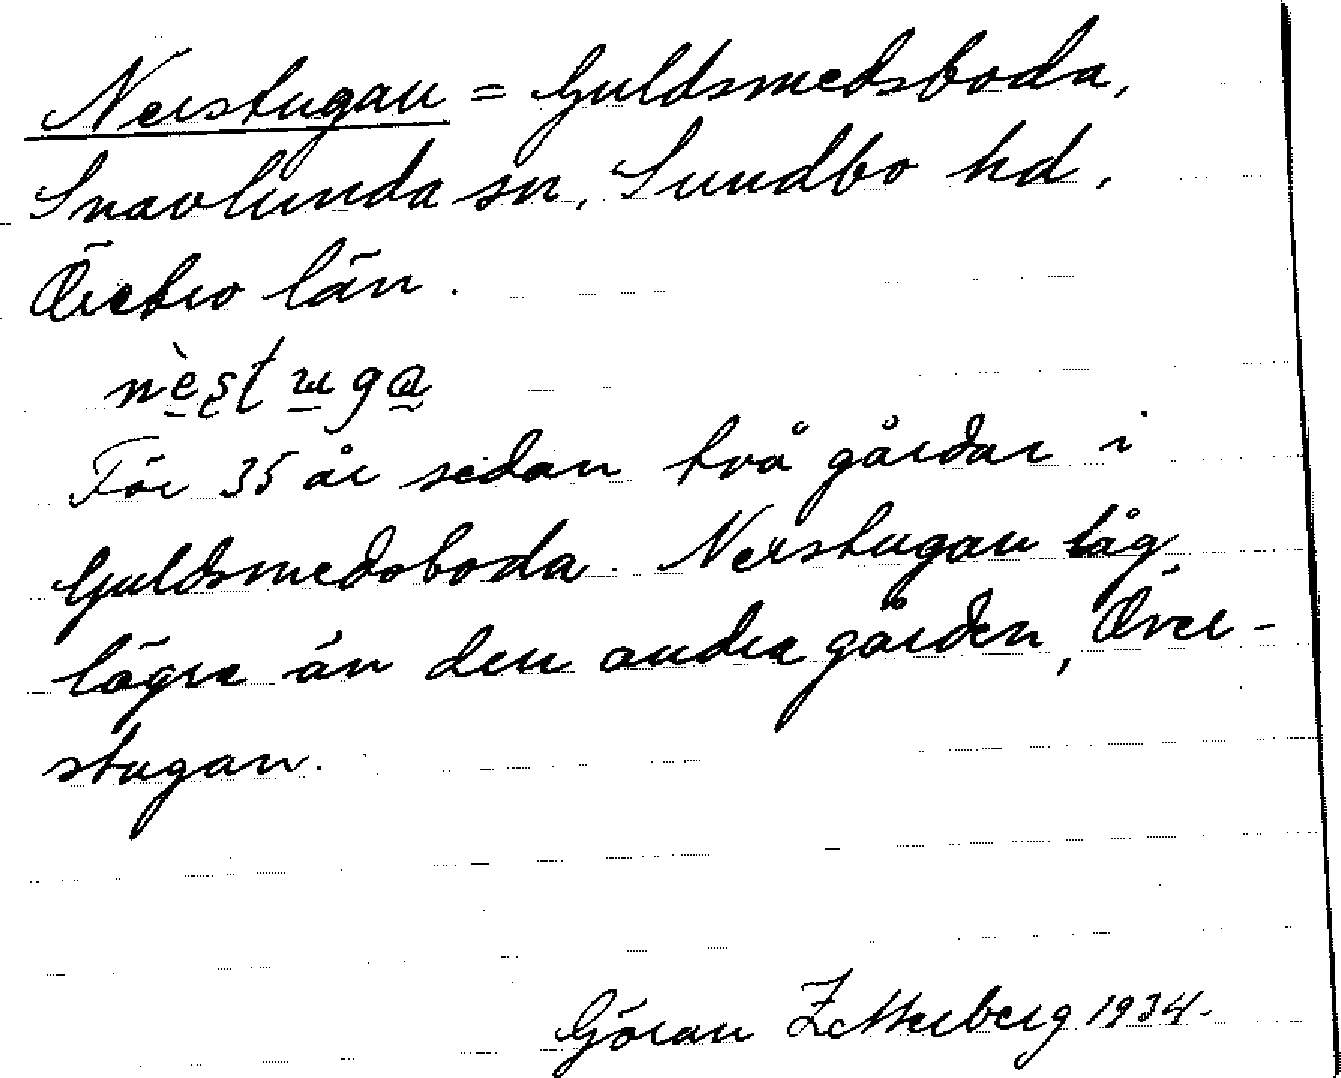 Nerstugan = Guldsmedsboda,
Snavlunda sn, Sundbo hd,
Örebro län.
nèstuga
För 35 år sedan två gårdar i
Guldsmedsboda. Nerstugan låg
lägre än den andra gården, Över-
stugan.
Göran Zetterberg 1934.